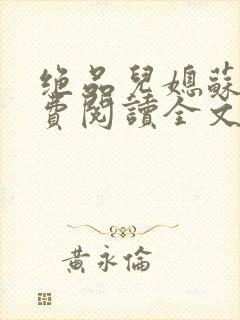 绝品兒媳蘇
費閱讀全文
黃永倫